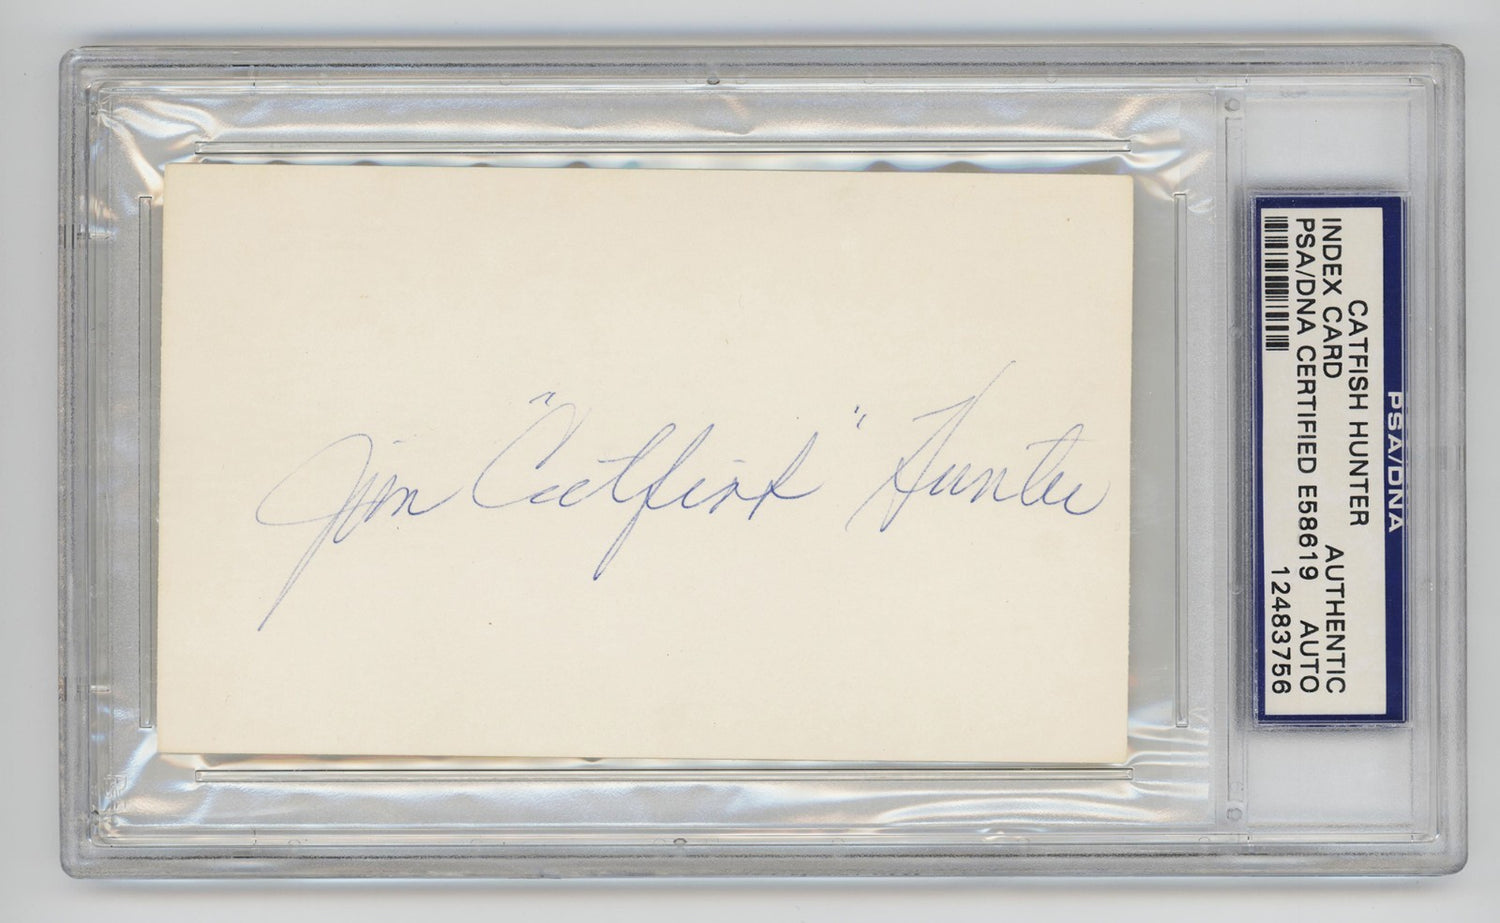 Jim "Catfish" Hunter
PSA/DNA
CATFISH HUNTER
INDEX CARD AUTHENTIC
PSA/DNA CERTIFIED E58619 AUTO
12483756